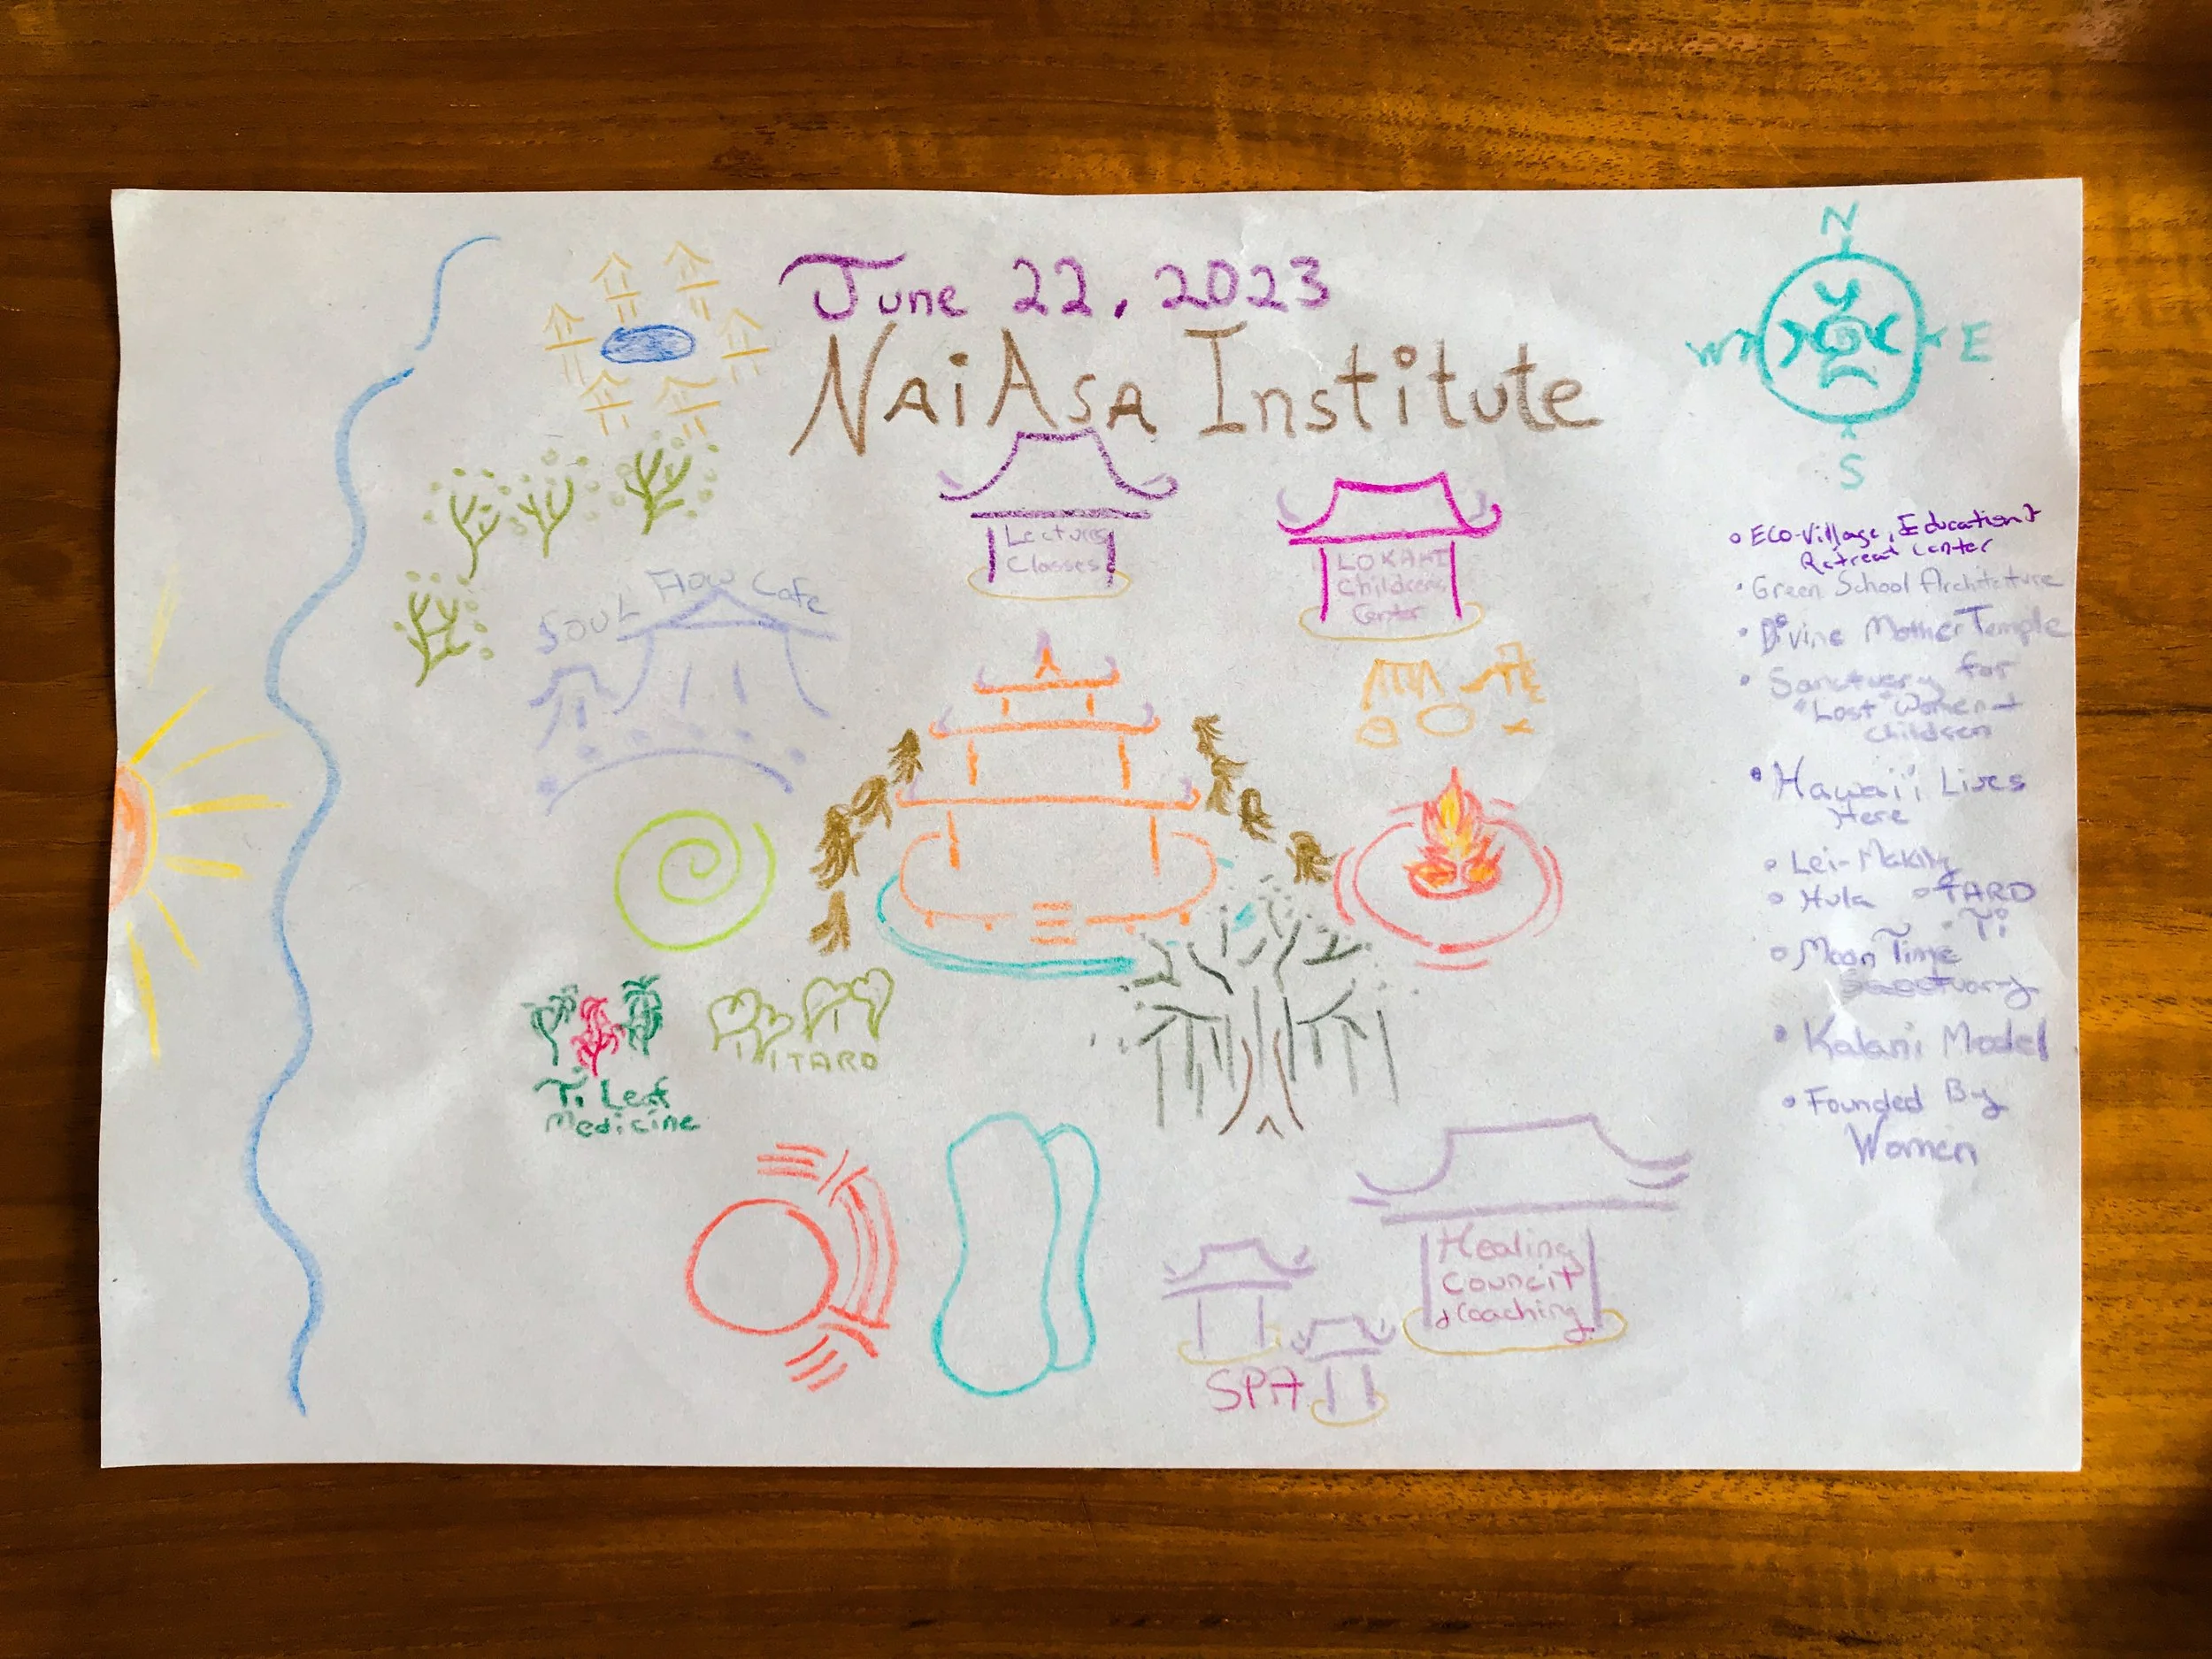 June 22, 2023
NaiAsa Institute
N
W
E
S
Lectures
Classes
LOKAHI
Childrens
Center
Soul Flow Cafe
Ti Leaf
Medicine
TARO
SPA
Healing
Council
& Coaching
• Eco-Village, Education &
Retreat Center
• Green School Architecture
• Divine Mother Temple
• Sanctuary for
"Lost" Women +
Children
• Hawai'i Lives
Here
• Lei-Making
• Hula • TARO
• Ti
• Moon Time
Sanctuary
• Kalani Model
• Founded By
Women